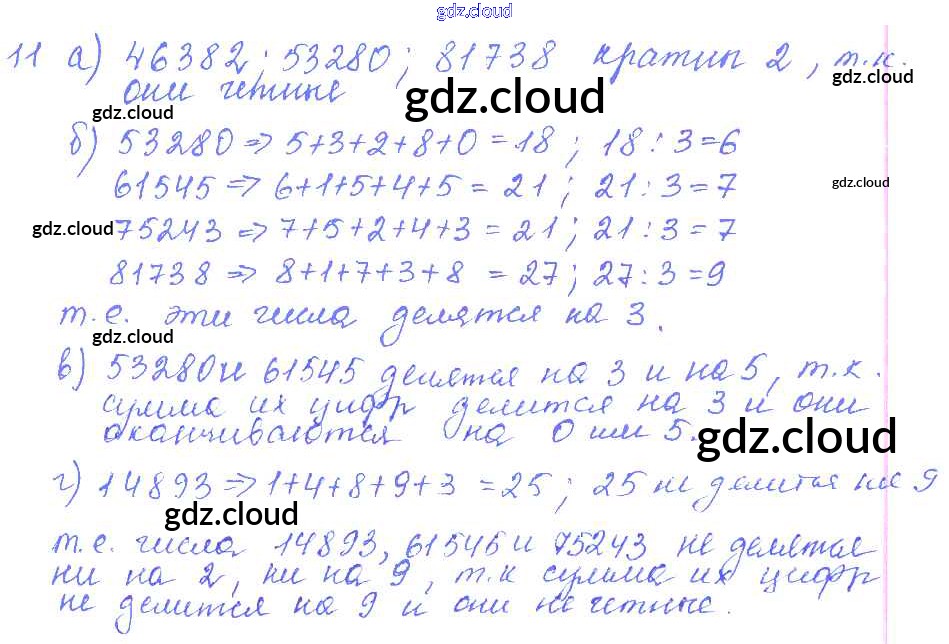 gdz.cloud
11 а) 46382; 53280; 81738 кратны 2, т.к.
gdz.cloud
они четные
gdz.cloud
gdz.cloud
б) 53280 => 5+3+2+8+0=18; 18:3=6
61545 => 6+1+5+4+5=21; 21:3=7
gdz.cloud
gdz.cloud
75243 => 7+5+2+4+3=21; 21:3=7
81738 => 8+1+7+3+8=27; 27:3=9
т.е. эти числа делятся на 3.
gdz.cloud
в) 53280 и 61545 делятся на 3 и на 5, т.к.
сумма их цифр делится на 3 и они
оканчиваются на 0 или 5.
gdz.cloud
г) 14893 => 1+4+8+9+3=25; 25 не делится на 9
gdz.cloud
т.е. числа 14893, 61545 и 75243 не делятся
ни на 2, ни на 9, т.к сумма их цифр
не делится на 9 и они не четные.